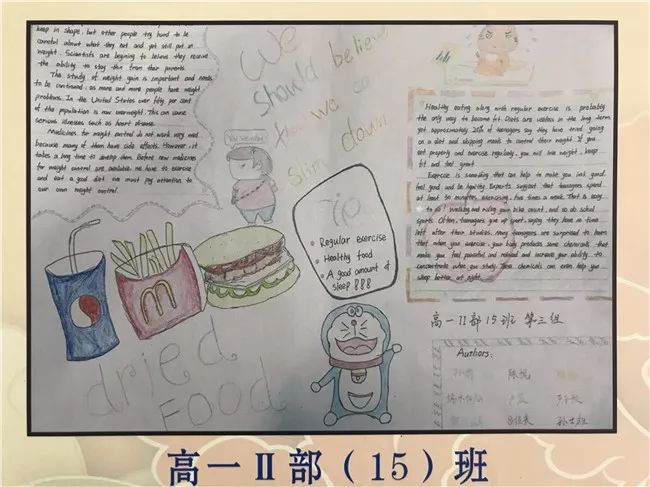 keep in shape, but other people try hard to be
careful about what they eat and yet still put on
weight. Scientists are begining to believe they receive
the ability to stay thin from their parents.
The study of weight gain is important and needs
to be continued, as more and more people have weight
problems. In the United States over fifty per cent
of the population is now overweight. This can cause
serious illnesses such as heart disease.
Medicines for weight control do not work very well
because many of them have side effects. However, it
takes a long time to develop them. Before new medicines
for weight control are available, we have to exercise
and eat a good diet. We must pay attention to
our own weight control.
We
should believe
that we can
slim down!
Tip
Regular Exercise
Healthy food
A good amount of
sleep!!!
Healthy eating along with regular exercise is probably
the only way to become fit. Diets are useless in the long term
yet approximately 20% of teenagers say they have tried going
on a diet and skipping meals to control their weight. If you
eat properly and exercise regularly, you will lose weight, keep
fit and feel great.
Exercise is something that can help to make you look good,
feel good and be healthy. Experts suggest that teenagers spend
at least 30 minutes exercising, five times a week. That is easy
to do! Walking and riding your bike count, and so do school
sports. Often, teenagers give up sport, saying they have no time
left after their studies. Many teenagers are surprised to learn
that when you exercise, your body produces some chemicals that
make you feel peaceful and relaxed and increase your ability to
concentrate when you study. These chemicals can even help you
sleep better at night.
高一II部15班 第三组
Authors:
陈悦
dried
FOOD
高一II部（15）班